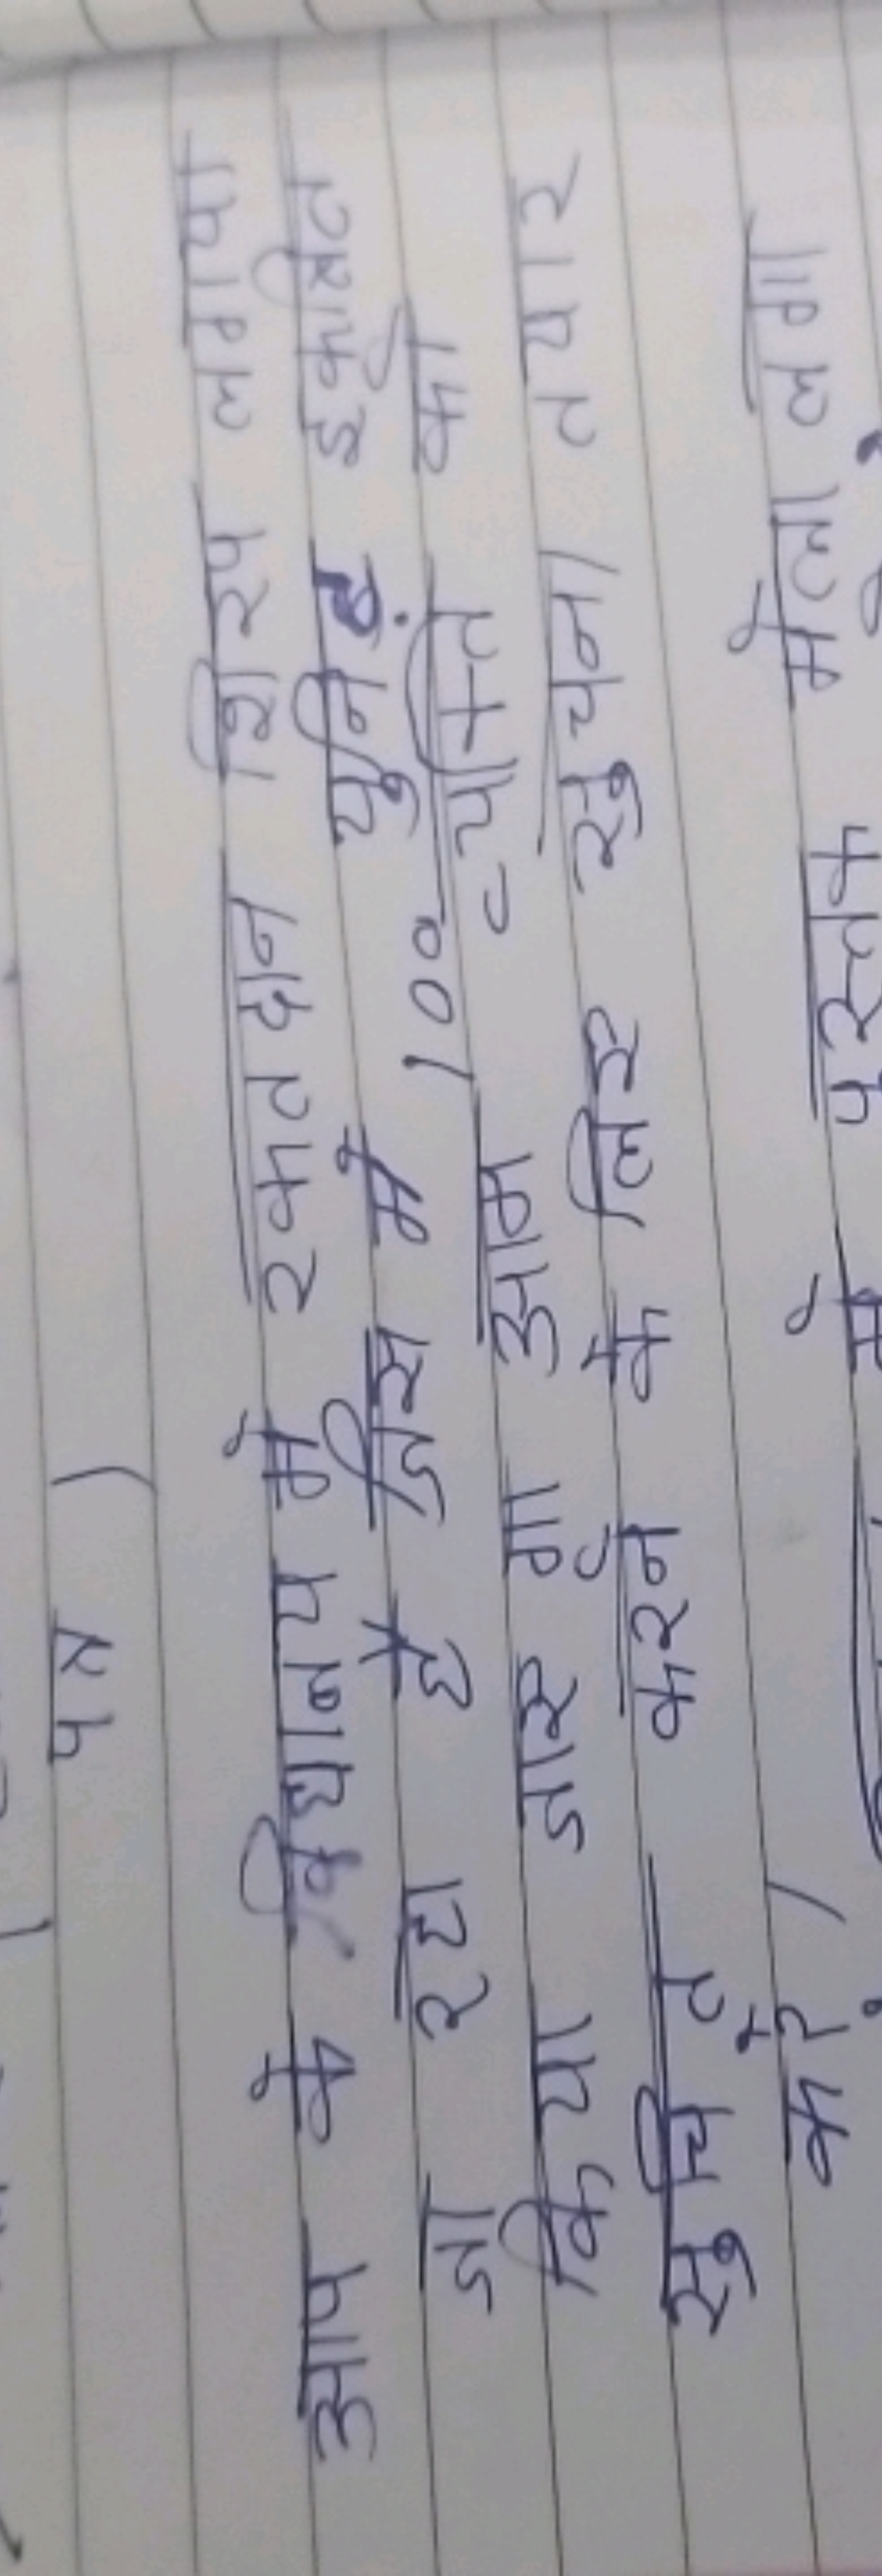 पत्र
आप के विद्यालय में रक्तदान शिरप लगाया
जा रहा है जिस में 100 युनिट इकत्रित
किया जाए गा आम व्यक्ति का
सुचित करने के लिए सुचना तयार
करें /
में पुस्तक मेला लगा